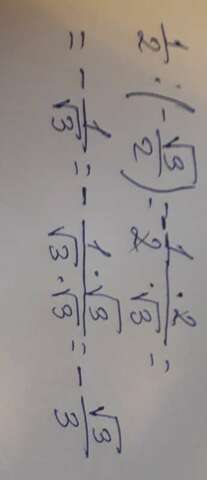 1/2 : (-√3/2) = -1·2/2·√3 =
= -1/√3 = -1·√3/√3·√3 = -√3/3